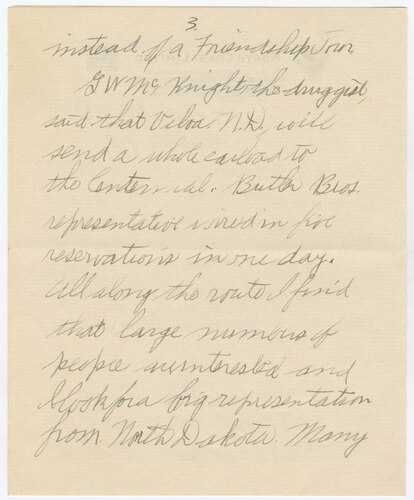 3.
instead of a Friendship Tour
G W Mc Knight, the druggist,
said that Velva. N.D., will
send a whole carload to
the Centennial. Butler Bros.
representative wired in five
reservations in one day.
All along the route I find
that large numbers of
people are interested and
I look for a big representation
from North Dakota. Many